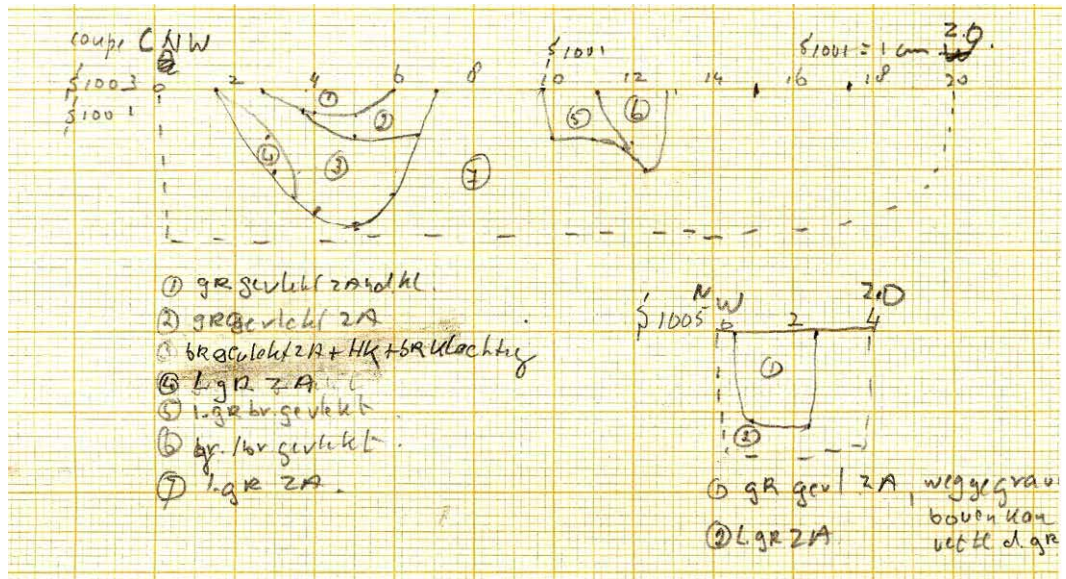 coupe C NW
S1001
S1001 = 1 cm
Z.O.
S1003 0 2 4 6 8 10 12 14 16 18 20
S1001
① ② ③ ④ ⑤ ⑥ ⑦
① gR gevlekt zAnd kl.
② gR gevlekt ZA
③ bR gevlekt ZA + HK + bR klachtig
④ L gR ZA
⑤ l.gR br. gevlekt
⑥ gr./br gevlekt.
⑦ l.gR ZA.
NW Z.O
S1005 0 2 4
①
②
① gR gevl ZA, weggegrav
boven kon
② L.gR ZA
d.gR